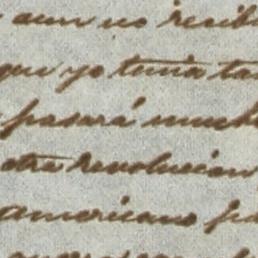 aun no recib
que yo tenia ta
pasará much
otra revolucion
americano pa